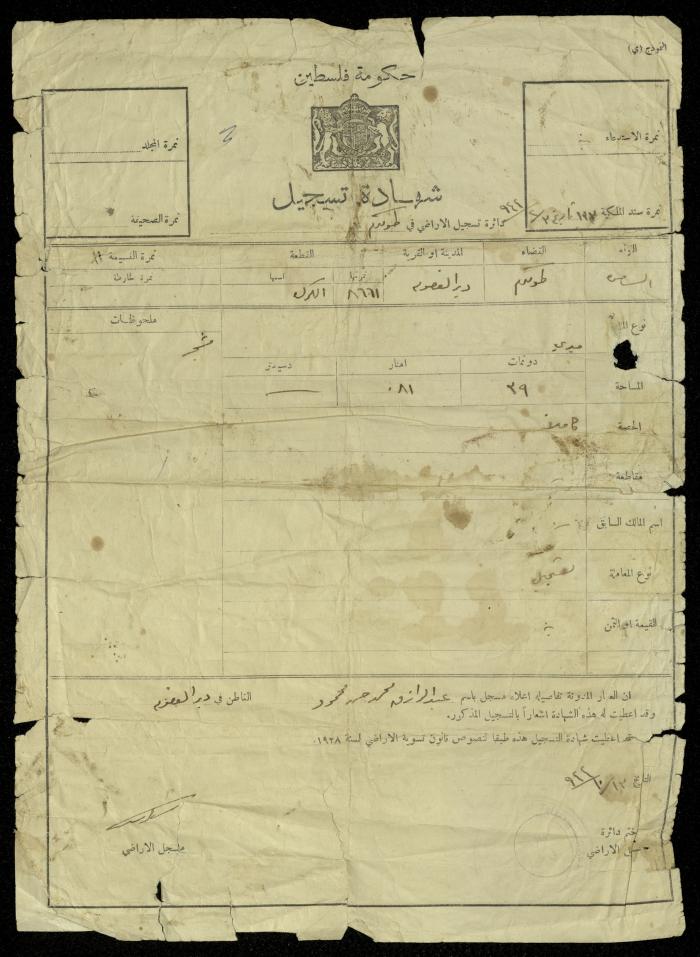 النموذج (ي)
حكومة فلسطين
نمرة الاستدعاء
نمرة المجلد
شهادة تسجيل
نمرة سند الملكية
نمرة الصحيفة
دائرة تسجيل الاراضي في طولكرم
القضاء
المدينة او القرية
القطعة
نمرة القسيمة
نمرتها
اسمها
نمرة الخارطة
طولكرم
دير الغصون
٨٦٦١
ملحوظات
نوع
ميري
مشجر
دونمات
امتار
دسيمتر
المساحة
٣٩
٠٨١
الحصة
كاملة
مقاطعة
اسم المالك السابق
نوع المعاملة
تسجيل
القيمة او الثمن
ان العقار المدونة تفاصيله اعلاه مسجل باسم عبد الرازق محمد حسن محمود القاطن في دير الغصون
وقد اعطيت له هذه الشهادة اشعاراً بالتسجيل المذكور.
قد اعطيت شهادة التسجيل هذه طبقا لنصوص قانون تسوية الاراضي لسنة ١٩٢٨.
التاريخ
ختم دائرة
مسجل الاراضي